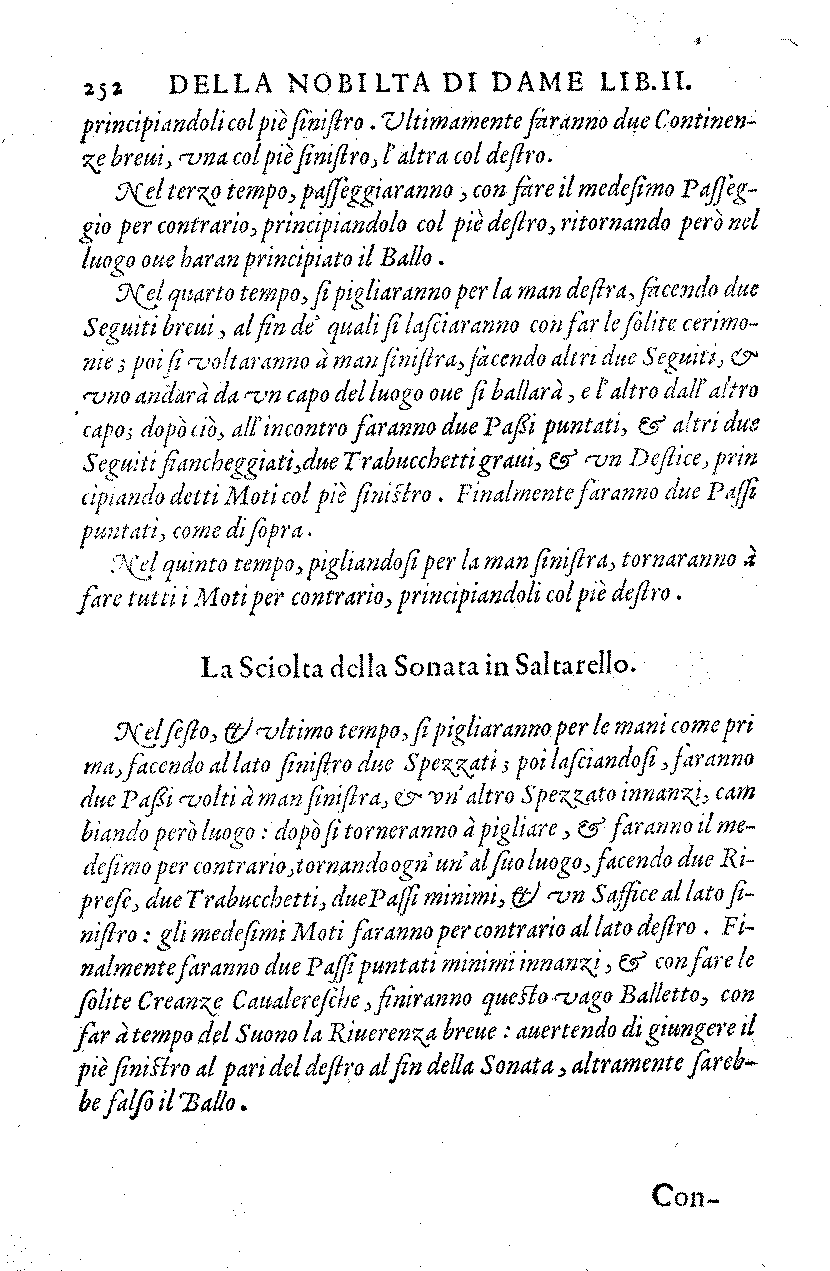 252 DELLA NOBILTA DI DAME LIB.II.
principiandoli col piè ſiniſtro. Vltimamente faranno due Continen-
ze breui, vna col piè ſiniſtro, l'altra col deſtro.
Nel terzo tempo, paſſeggiaranno, con fare il medeſimo Paſſeg-
gio per contrario, principiandolo col piè deſtro, ritornando però nel
luogo oue haran principiato il Ballo.
Nel quarto tempo, ſi pigliaranno per la man deſtra, facendo due
Seguiti breui, al fin de' quali ſi laſciaranno con far le ſolite cerimo-
nie; poi ſi voltaranno à man ſiniſtra, facendo altri due Seguiti, &
vno andarà da vn capo del luogo oue ſi ballarà, e l'altro dall'altro
capo; dopò ciò, all'incontro faranno due Paßi puntati, & altri due
Seguiti fiancheggiati, due Trabucchetti graui, & vn Deſtice, prin
cipiando detti Moti col piè ſiniſtro. Finalmente faranno due Paſſi
puntati, come di ſopra.
Nel quinto tempo, pigliandoſi per la man ſiniſtra, tornaranno à
fare tutti i Moti per contrario, principiandoli col piè deſtro.
La Sciolta della Sonata in Saltarello.
Nel ſeſto, & vltimo tempo, ſi pigliaranno per le mani come pri
ma, facendo al lato ſiniſtro due Spezzati; poi laſciandoſi, faranno
due Paßi volti à man ſiniſtra, & vn'altro Spezzato innanzi, cam
biando però luogo: dopò ſi torneranno à pigliare, & faranno il me-
deſimo per contrario, tornando ogn'un'al ſuo luogo, facendo due Ri-
preſe, due Trabucchetti, due Paſſi minimi, & vn Saffice al lato ſi-
niſtro: gli medeſimi Moti faranno per contrario al lato deſtro. Fi-
nalmente faranno due Paſſi puntati minimi innanzi, & con fare le
ſolite Creanze Caualereſche, finiranno queſto vago Balletto, con
far à tempo del Suono la Riuerenza breue: auertendo di giungere il
piè ſiniſtro al pari del deſtro al fin della Sonata, altramente ſareb-
be falſo il Ballo.
Con-